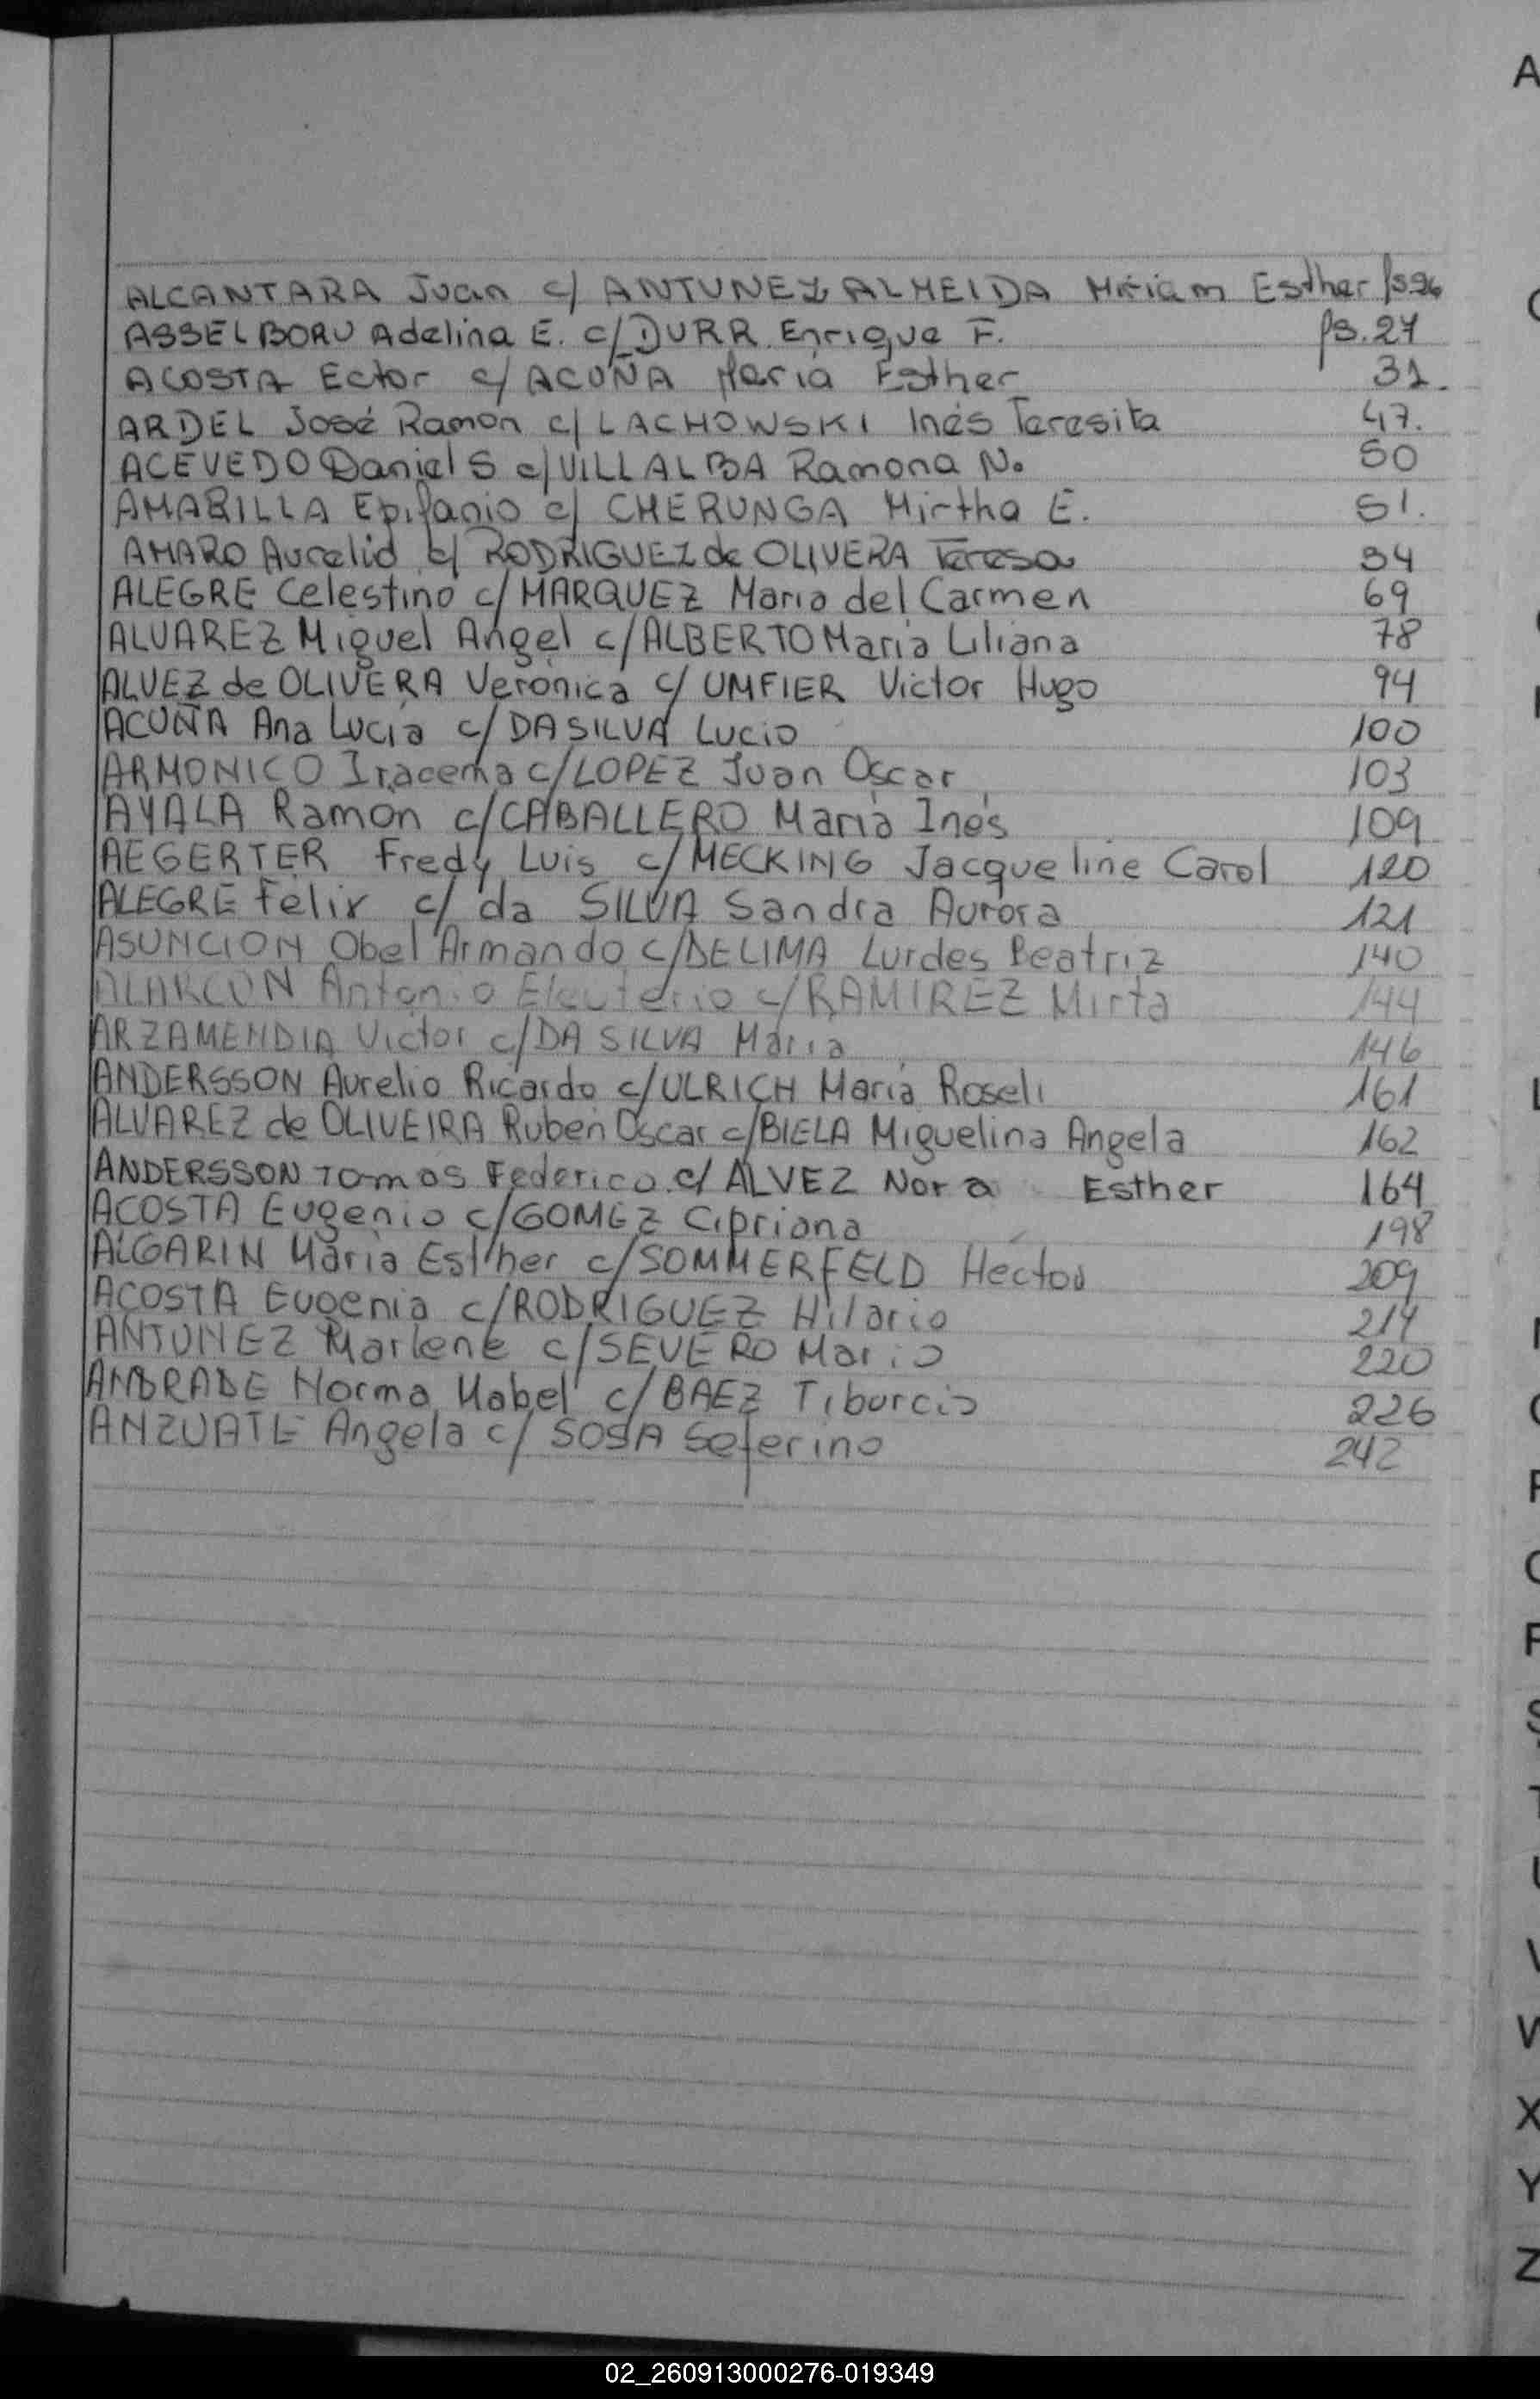 ALCANTARA Juan c/ ANTUNEZ ALMEIDA Miriam Esther ps.26
ASSELBORN Adelina E. c/ DURR Enrique F. ps.27
ACOSTA Ector c/ ACUÑA Maria Esther 31.
ARDEL José Ramón c/ LACHOWSKI Inés Teresita 47.
ACEVEDO Daniel S c/ VILLALBA Ramona N. 50
AMARILLA Epifanio c/ CHERUNGA Mirtha E. 51.
AMARO Aurelio c/ RODRIGUEZ de OLIVERA Teresa 34
ALEGRE Celestino c/ MARQUEZ Maria del Carmen 69
ALVAREZ Miguel Angel c/ ALBERTO Maria Liliana 78
ALVEZ de OLIVERA Verónica c/ UMFIER Victor Hugo 94
ACUÑA Ana Lucía c/ DA SILVA Lucio 100
ARMONICO Iracema c/ LOPEZ Juan Oscar 103
AYALA Ramón c/ CABALLERO María Inés 109
AEGERTER Fredy Luis c/ MECKING Jacqueline Carol 120
ALEGRE Felix c/ da SILVA Sandra Aurora 121
ASUNCION Obel Armando c/ DELIMA Lurdes Beatriz 140
ALARCON Antonio Eleuterio c/ RAMIREZ Mirta 144
ARZAMENDIA Victor c/ DA SILVA María 146
ANDERSSON Aurelio Ricardo c/ ULRICH María Roseli 161
ALVAREZ de OLIVEIRA Ruben Oscar c/ BIELA Miguelina Angela 162
ANDERSSON Tomas Federico c/ ALVEZ Nora Esther 164
ACOSTA Eugenio c/ GOMEZ Cipriana 198
ALGARIN María Esther c/ SOMMERFELD Héctor 209
ACOSTA Eugenia c/ RODRIGUEZ Hilario 214
ANTUNEZ Marlene c/ SEVERO Mario 220
ANDRADE Norma Mabel c/ BAEZ Tiburcio 226
ANZUATE Angela c/ SOSA Seferino 242
A
V
W
X
Y
Z
02_260913000276-019349